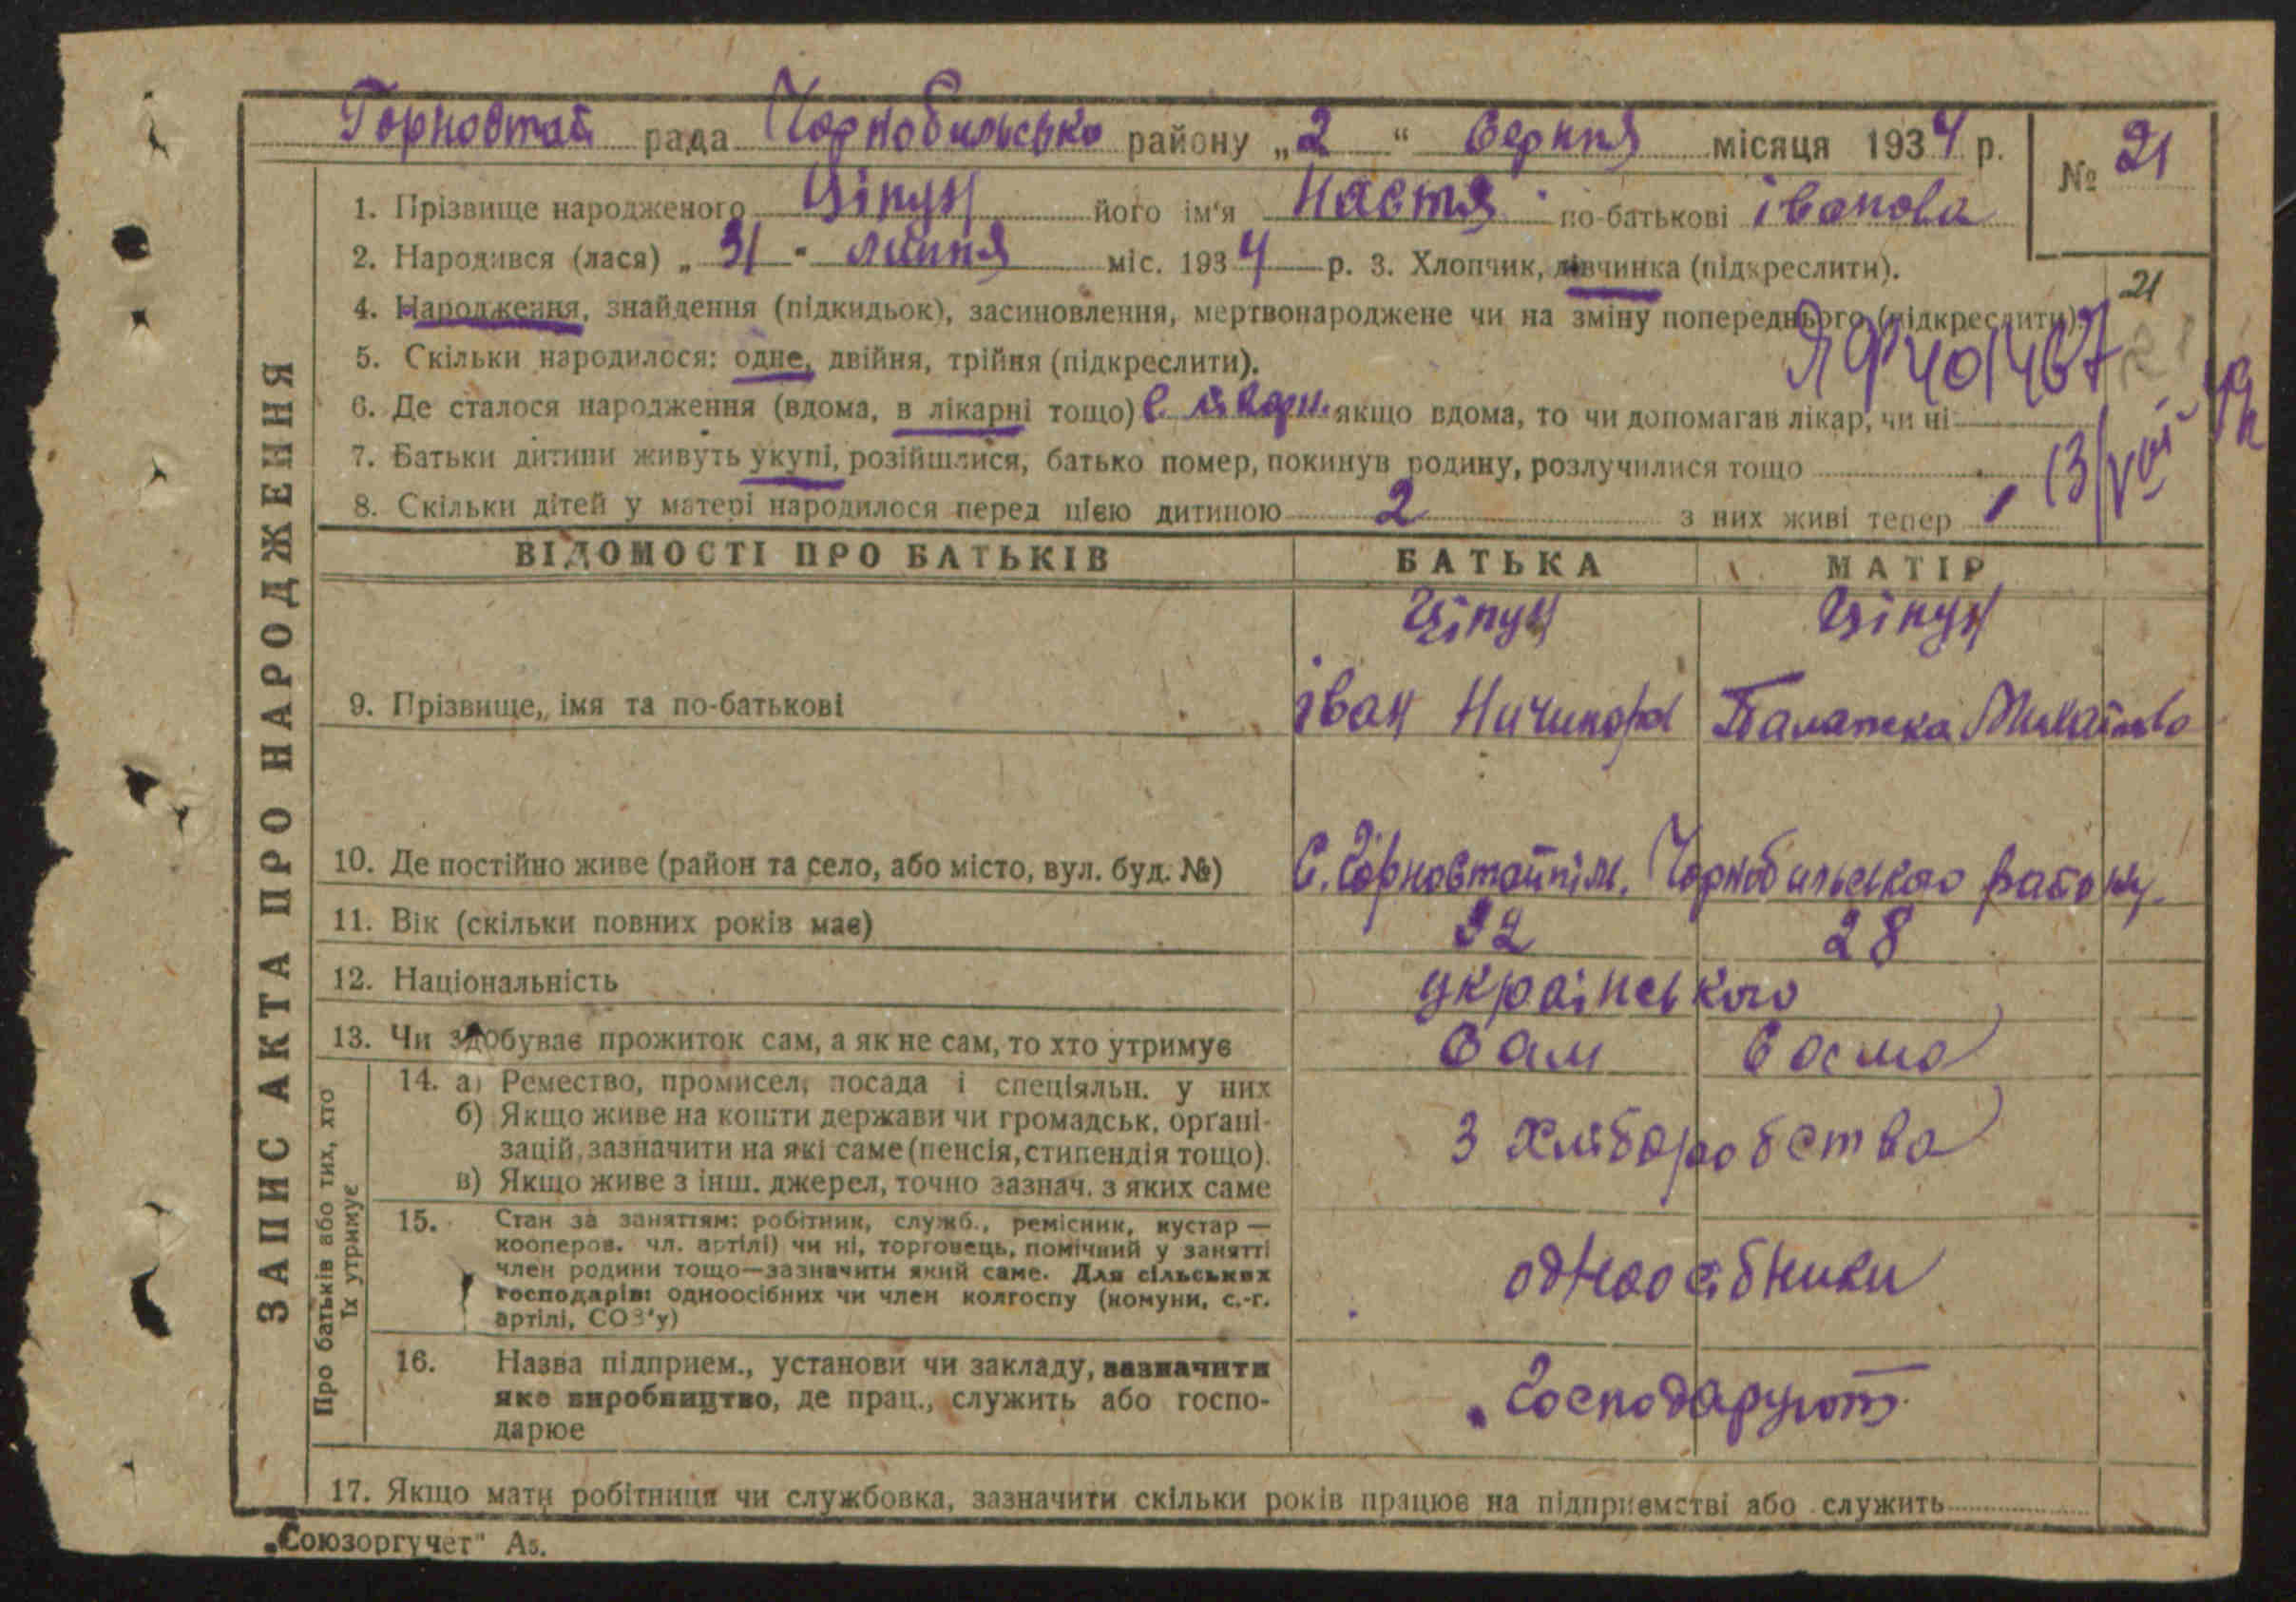 Горностай рада Чорнобильсько району „2“ серпня місяця 1934 р.
№ 21
1. Прізвище народженого Ціпун його ім'я Настя по-батькові іванова
2. Народився (лася) „31" липня міс. 1934 р. 3. Хлопчик, дівчинка (підкреслити).
21
4. Народження, знайдення (підкидьок), засиновлення, мертвонароджене чи на зміну попереднього (підкреслити).
5. Скільки народилося: одне, двійня, трійня (підкреслити).
ЯФ 401467
6. Де сталося народження (вдома, в лікарні тощо) в лікарн. якщо вдома, то чи допомагав лікар, чи ні
13/VIII
7. Батьки дитини живуть укупі, розійшлися, батько помер, покинув родину, розлучилися тощо
8. Скільки дітей у матері народилося перед цією дитиною 2 з них живі тепер 1
ЗАПИС АКТА ПРО НАРОДЖЕННЯ
ВІДОМОСТІ ПРО БАТЬКІВ БАТЬКА МАТІР
Ціпун Ціпун
9. Прізвище, імя та по-батькові іван Ничипоров Палажка Михайлова
10. Де постійно живе (район та село, або місто, вул. буд. №) С. Горностайпіль. Чорнобильського району.
11. Вік (скільки повних років має) 32 28
12. Національність українського
13. Чи здобуває прожиток сам, а як не сам, то хто утримує Сам Сама
Про батьків або тих, хто
їх утримує
14. а) Ремество, промисел, посада і спеціяльн. у них
б) Якщо живе на кошти держави чи громадськ. орґані-
зацій, зазначити на які саме (пенсія, стипендія тощо).
в) Якщо живе з інш. джерел, точно зазнач. з яких саме
З хліборобства
15. Стан за заняттям: робітник, служб., ремісник, кустар —
кооперов. чл. артілі) чи ні, торговець, помічний у занятті
член родини тощо—зазначити який саме. Для сільських
господарів: одноосібних чи член колгоспу (комуни, с.-г.
артілі, СОЗ'у)
одноосібники
16. Назва підприєм., установи чи закладу, зазначити
яке виробництво, де прац., служить або госпо-
дарює
Господарують
17. Якщо мати робітниця чи службовка, зазначити скільки років працює на підприємстві або служить
„Союзоргучет" А5.